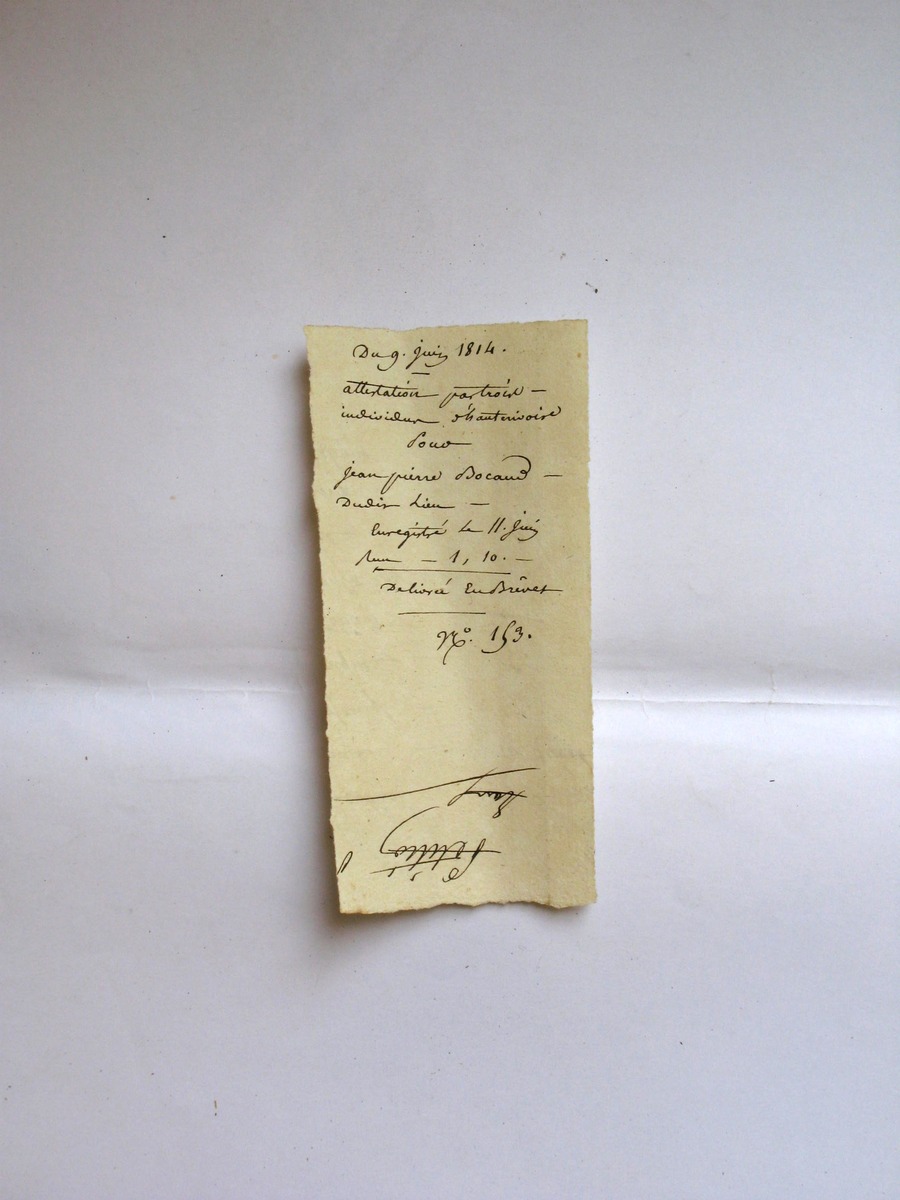 Du 9. juin 1814.
attestation par trois
individus d'hauterivoire
Pour
jean pierre Bocaud
Dudit Lieu
Enregistré le 11. juin
1, 10.
Délivré En Brêvet
N.º 153.